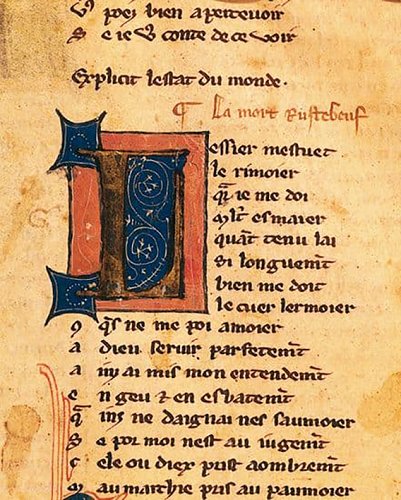 Vꝰ poez bien apercevoir
S e ie vꝰ conte de ce voir
Explicit lestat du monde.
¶ La mort Rustebeuf
Lessier mestuet
le rimoier
Q̃r ie me doi
ml̃t esmaier
quãt tenu lai
si longuemẽt
bien me doit
le cuer lermoier
ꝯ q̃s ne me poi amoier
a dieu servir parfetemẽt
a inz ai mis mon entendemẽt
e n geu ⁊ en esbatemẽt
q̃ inz ne daignai nes saumoier
S e por moi nest au iugemẽt
c ele ou diex prist aombremẽt
M au marchie pris au paumoier